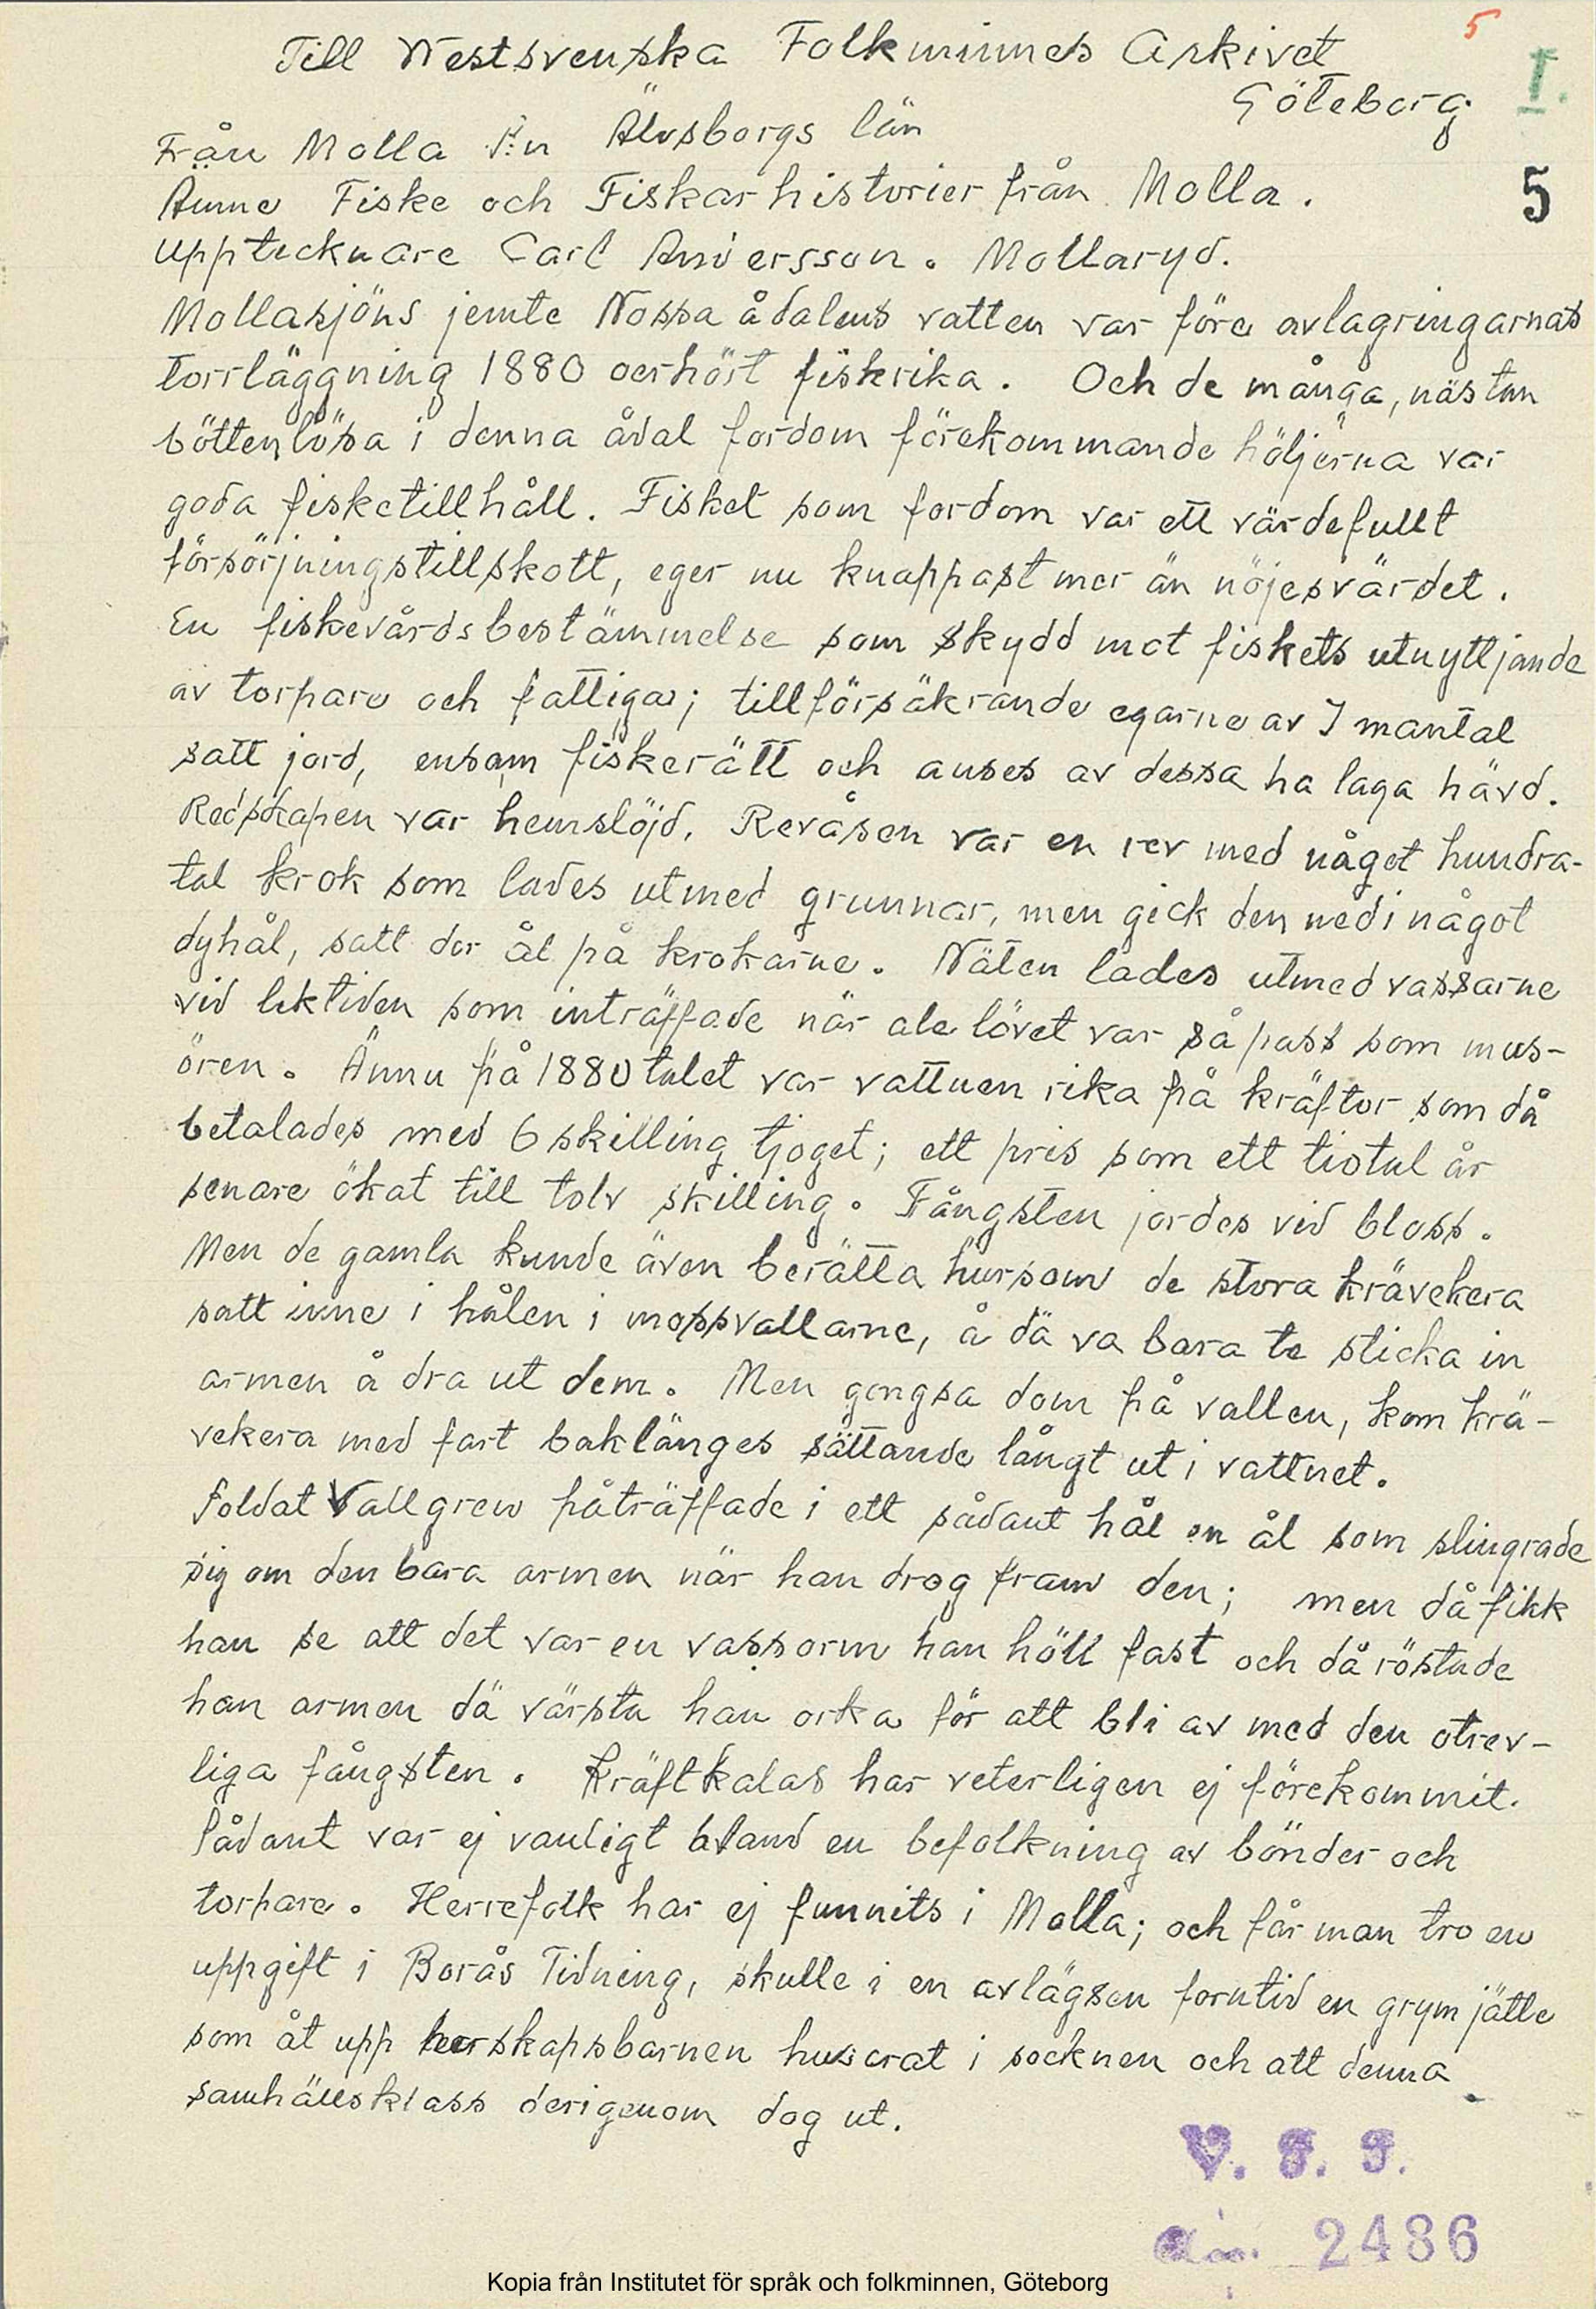 5
Till Westsvenska Folkminnes Arkivet
Göteborg.
I.
Från Molla S:n Älvsborgs län
Ämne Fiske och Fiskarhistorier från Molla.
5
Upptecknare Carl Andersson. Mollaryd.
Mollasjöns jemte Nossa ådalens vatten var före avlagringarnas
torrläggning 1880 oerhöst fiskrika. Och de många, nästan
bottenlösa i denna ådal fordom förekommande höljerna var
goda fisketillhåll. Fisket som fordom var ett värdefullt
försörjningstillskott, eger nu knappast mer än nöjesvärdet.
En fiskevårdsbestämmelse som skydd mot fiskets utnyttjande
av torpare och fattiga; tillförsäkrande egarne av I mantal
satt jord, ensam fiskerätt och anses av dessa ha laga hävd.
Redskapen var hemslöjd. Revåsen var en rev med något hundra-
tal krok som lades utmed grunnar, men gick den ned i något
dyhål, satt der ål på krokarne. Näten lades utmed vassarne
vid lektiden som inträffade när ale lövet var så pass som mus-
ören. Ännu på 1880 talet var vattnen rika på kräftor som då
betalades med 6 skilling tjoget; ett pris som ett tiotal år
senare ökat till tolv skilling. Fångsten jordes vid bloss.
Men de gamla kunde även berätta hursom de stora krävekera
satt inne i hålen i mossvallarne, å dä va bara te sticka in
armen å dra ut dem. Men gongsa dom på vallen, kom krä-
vekera med fart baklänges sättande långt ut i vattnet.
Soldat Vallgren påträffade i ett sådant hål en ål som slingrade
sig om den bara armen när han drog fram den; men då fikk
han se att det var en vassorm han höll fast och då röstade
han armen dä värsta han orka för att bli av med den otrev-
liga fångsten. Kräftkalas har veterligen ej förekommit.
Sådant var ej vanligt bland en befolkning av bönder och
torpare. Herrefolk har ej funnits i Molla; och får man tro en
uppgift i Borås Tidning, skulle i en avlägsen forntid en grym jätte
som åt upp herskapsbarnen huserat i socknen och att denna
samhällsklass derigenom dog ut.
V. F. F.
2486
Kopia från Institutet för språk och folkminnen, Göteborg